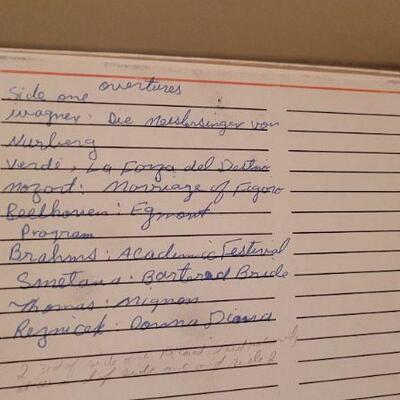 overtures
Side one
Wagner: Die Meistersinger von
Nurberg
Verdi: La Forza del Destino
Mozart: Marriage of Figaro
Beethoven: Egmont
Program
Brahms: Academic Festival
Smetana: Bartered Bride
Thomas: Mignon
Reznicek: Donna Diana
2 of side one
of side one and side 2